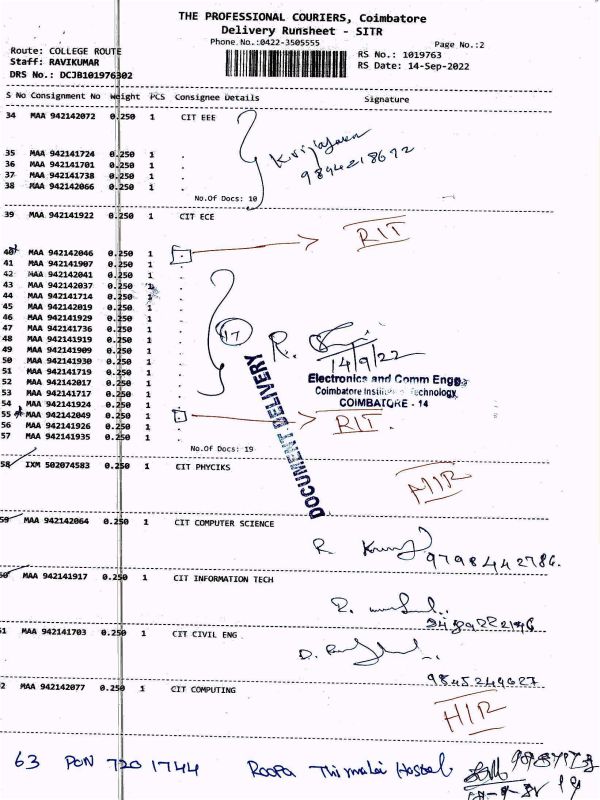 THE PROFESSIONAL COURIERS, Coimbatore
Delivery Runsheet - SITR
Phone No.:0422-3505555
Page No.:2
Route: COLLEGE ROUTE
RS No.: 1019763
Staff: RAVIKUMAR
RS Date: 14-Sep-2022
DRS No.: DCJB101976302
S No Consignment No Weight PCS Consignee Details Signature
34 MAA 942142072 0.250 1 CIT EEE
35 MAA 942141724 0.250 1 .
36 MAA 942141701 0.250 1 .
37 MAA 942141738 0.250 1 .
38 MAA 942142066 0.250 1 .
9894218672
No.Of Docs: 10
39 MAA 942141922 0.250 1 CIT ECE
RIT
40 MAA 942142046 0.250 1 .
41 MAA 942141907 0.250 1 .
42 MAA 942142041 0.250 1 .
43 MAA 942142037 0.250 1 .
44 MAA 942141714 0.250 1 .
45 MAA 942142019 0.250 1 .
46 MAA 942141929 0.250 1 .
47 MAA 942141736 0.250 1 .
17
48 MAA 942141919 0.250 1 .
49 MAA 942141909 0.250 1 .
50 MAA 942141930 0.250 1 .
14/9/22
51 MAA 942141719 0.250 1 .
52 MAA 942142017 0.250 1 .
Electronics and Comm Engg
53 MAA 942141717 0.250 1 .
Coimbatore Institute of Technology
54 MAA 942141924 0.250 1 .
COIMBATORE - 14
55 MAA 942142049 0.250 1 .
RIT.
56 MAA 942141926 0.250 1 .
57 MAA 942141935 0.250 1 .
DOCUMENT DELIVERY
No.Of Docs: 19
58 IXM 502074583 0.250 1 CIT PHYCIKS
59 MAA 942142064 0.250 1 CIT COMPUTER SCIENCE
R
9798442786.
60 MAA 942141917 0.250 1 CIT INFORMATION TECH
61 MAA 942141703 0.250 1 CIT CIVIL ENG
9845249627
2 MAA 942142077 0.250 1 CIT COMPUTING
HIR
63 PON 720 1744 Roopa Thirmalai Hostel